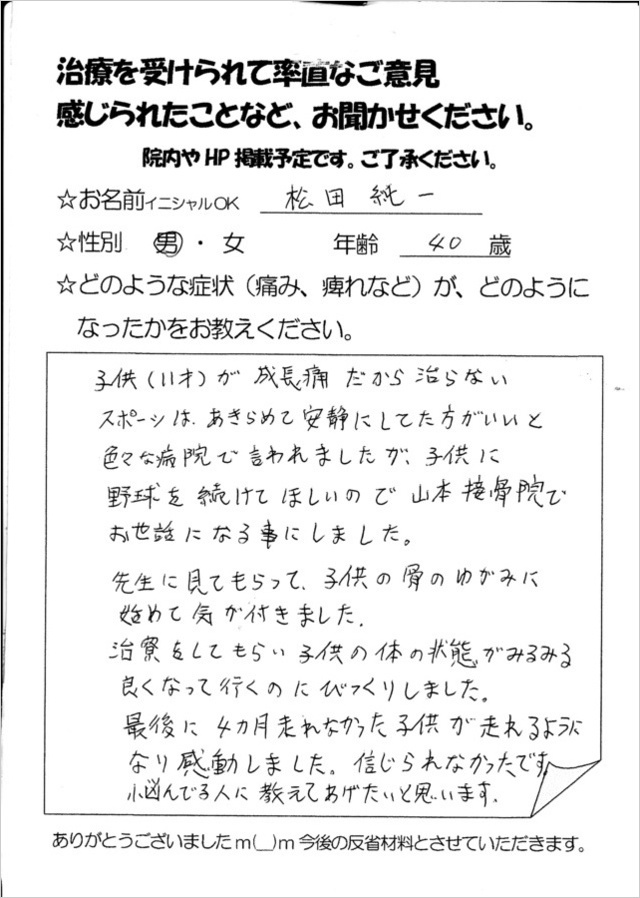 治療を受けられて率直なご意見
感じられたことなど、お聞かせください。
院内やHP掲載予定です。ご了承ください。
☆お名前イニシャルOK 松田純一
☆性別 男・女 年齢 40 歳
☆どのような症状（痛み、痺れなど）が、どのように
なったかをお教えください。
子供（11才）が 成長痛 だから 治らない
スポーツは、あきらめて安静にしてた方がいいと
色々な病院で言われましたが、子供に
野球を続けてほしいので 山本接骨院で
お世話になる事にしました。
先生に見てもらって、子供の骨のゆがみに
始めて気が付きました。
治寮をしてもらい子供の体の状態がみるみる
良くなって行くのにびっくりしました。
最後に 4カ月走れなかった子供が走れるように
なり感動しました。信じられなかったです。
悩んでる人に教えてあげたいと思います。
ありがとうございましたm(__)m今後の反省材料とさせていただきます。